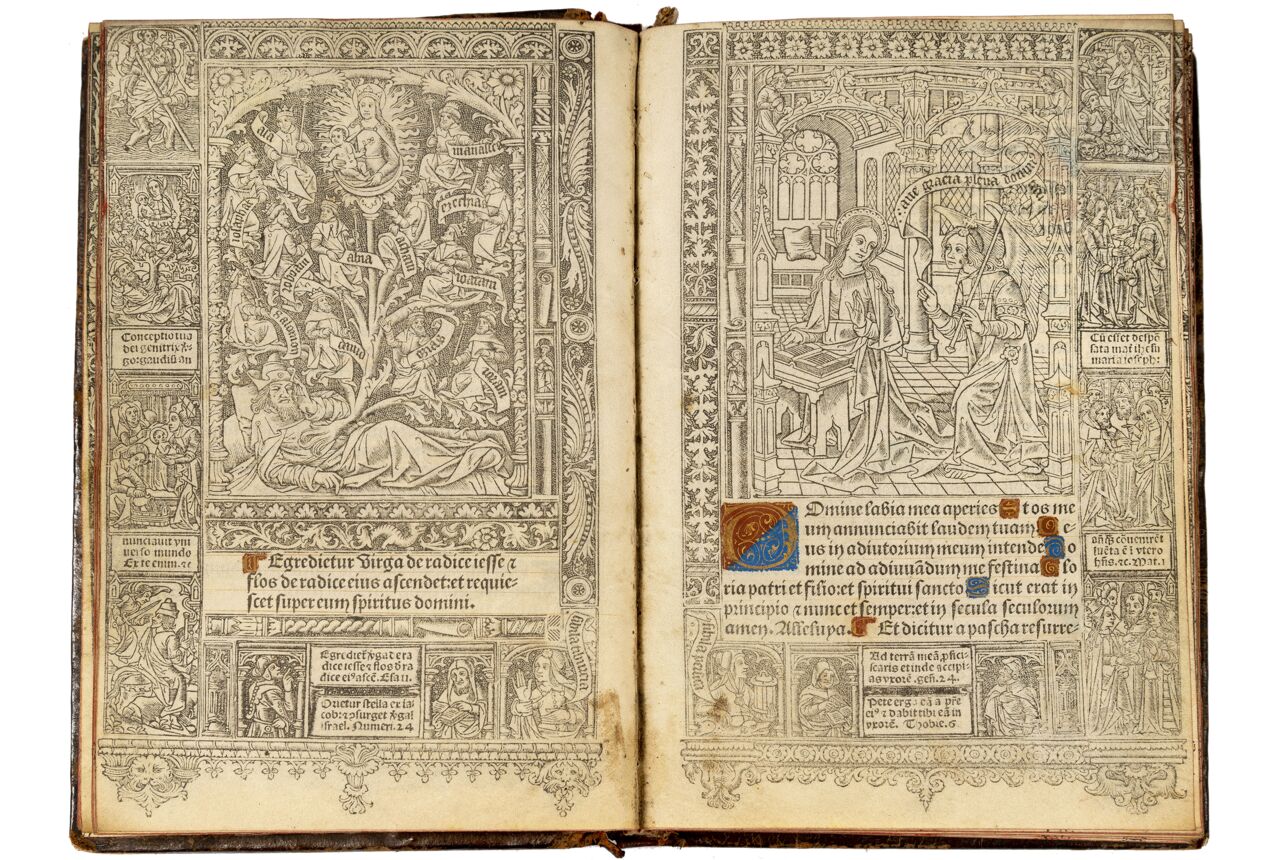 asa
manasses
iosaphat
ezechias
ioram
abia
amon
ioatam
salomon
david
ozias
roboam
Conceptio tua
dei genitrix v̄-
go: gaudiū an
nunciavit vni
verso mundo
Ex te enim. ꝛc
¶ Egredietur virga de radice iesse ꞇ
flos de radice eius ascendet: et requie-
scet super eum spiritus domini.
Egrediet̄ v̄ga de ra
dice iesse ꞇ flos d̄ ra
dice ei⁹ ascē. Esa 11.
Orietur stella ex ia
cob: ꞇ ꝯsurget v̄ga
israel. Numeri. 24
aue gracia plena domin⁹
Domine labia mea aperies Et os me
um annunciabit laudem tuam De-
us in adiutorium meum intende Do
mine ad adiuvādum me festina Glo
ria patri et filio: et spiritui sancto Sicut erat in
principio ꞇ nunc et semper: et in secula seculorum
amen. Alleluya. ¶ Et dicitur a pascha resurre-
Cū esset despō
sata mat̄ ihesu
maria ioseph:
añq̄ꝫ cōvenirēt
īvēta ē ī vtero
hñs. ꝛc. Mat. 1
Ad terrā meā ꝓfici
scaris et inde accipi
as vxorē. gen. 24.
Pete ergo eā a pre
ei⁹ ꞇ dabit tibi eā in
vxorē. Thobie. 6